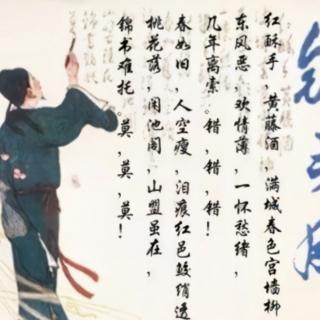 红酥手，黄藤酒，满城春色宫墙柳
东风恶，欢情薄，一怀愁绪，
几年离索。错，错，错！
春如旧，人空瘦，泪痕红邑鲛绡透
桃花落，闲池阁，山盟虽在，
锦书难托。莫，莫，莫！